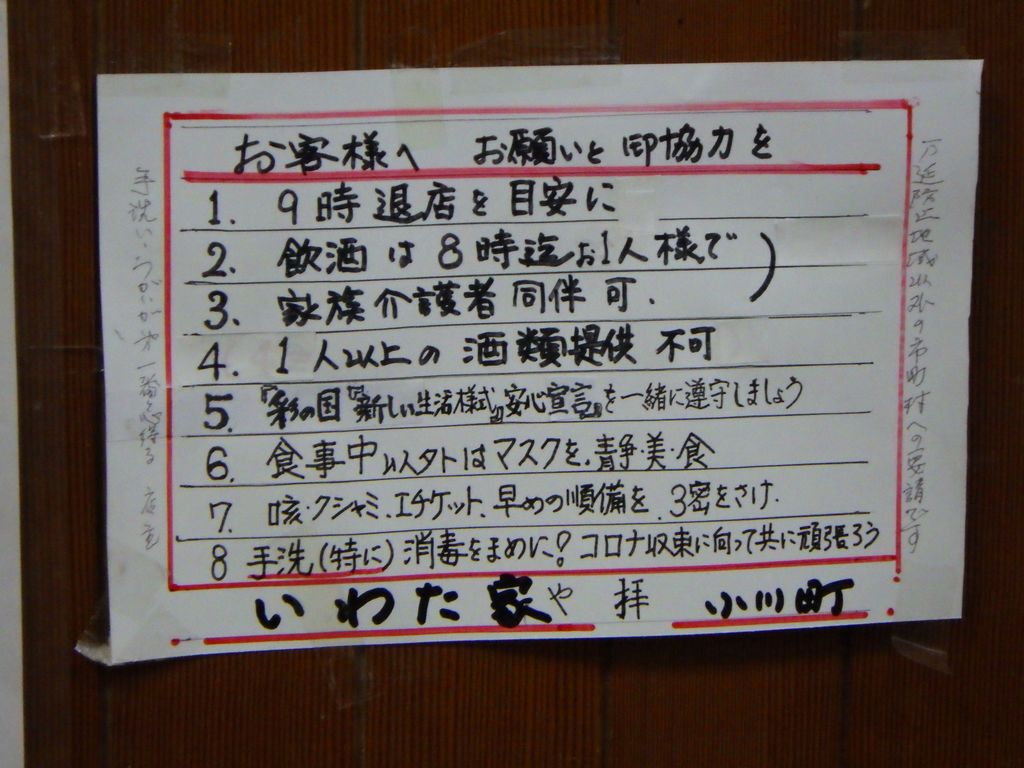 お客様へ お願いと御協力を
1. 9時退店を目安に
2. 飲酒は8時迄お1人様で )
3. 家族介護者同伴可.
4. 1人以上の酒類提供 不可
5. 『彩の国『新しい生活様式』安心宣言』を一緒に遵守しましょう
6. 食事中以外はマスクを.静・美・食
7. 咳・クシャミ、エチケット、早めの順備を、3密をさけ.
8 手洗(特に)消毒をまめに!コロナ収束に向って共に頑張ろう
いわた家や 拝 小川町
手洗い・うがいが第一番
店主
万延防止地域以外の市町村への要請です